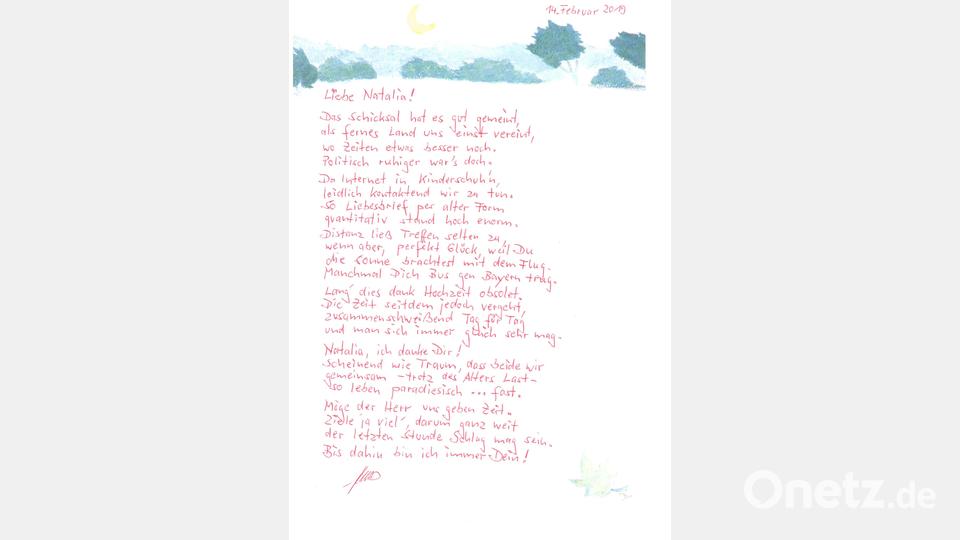 14. Februar 2019
Liebe Natalia!
Das Schicksal hat es gut gemeint,
als fernes Land uns einst vereint,
wo Zeiten etwas besser noch.
Politisch ruhiger war's doch.
Da Internet in Kinderschuh'n,
leidlich kontaktend wir zu tun.
So Liebesbrief per alter Form
quantitativ stand hoch enorm.
Distanz ließ Treffen selten zu,
wenn aber, perfekt Glück, weil Du
die Sonne brachtest mit dem Flug.
Manchmal Dich Bus gen Bayern trug.
Lang' dies dank Hochzeit obsolet.
Die Zeit seitdem jedoch vergeht,
zusammenschweißend Tag für Tag
und man sich immer gleich sehr mag.
Natalia, ich danke Dir!
Scheinend wie Traum, dass beide wir
gemeinsam - trotz des Alters Last -
so leben paradiesisch ... fast.
Möge der Herr uns geben Zeit.
Ziele ja viel', darum ganz weit
der letzten Stunde Schlag mag sein.
Bis dahin bin ich immer Dein!
Onetz.de